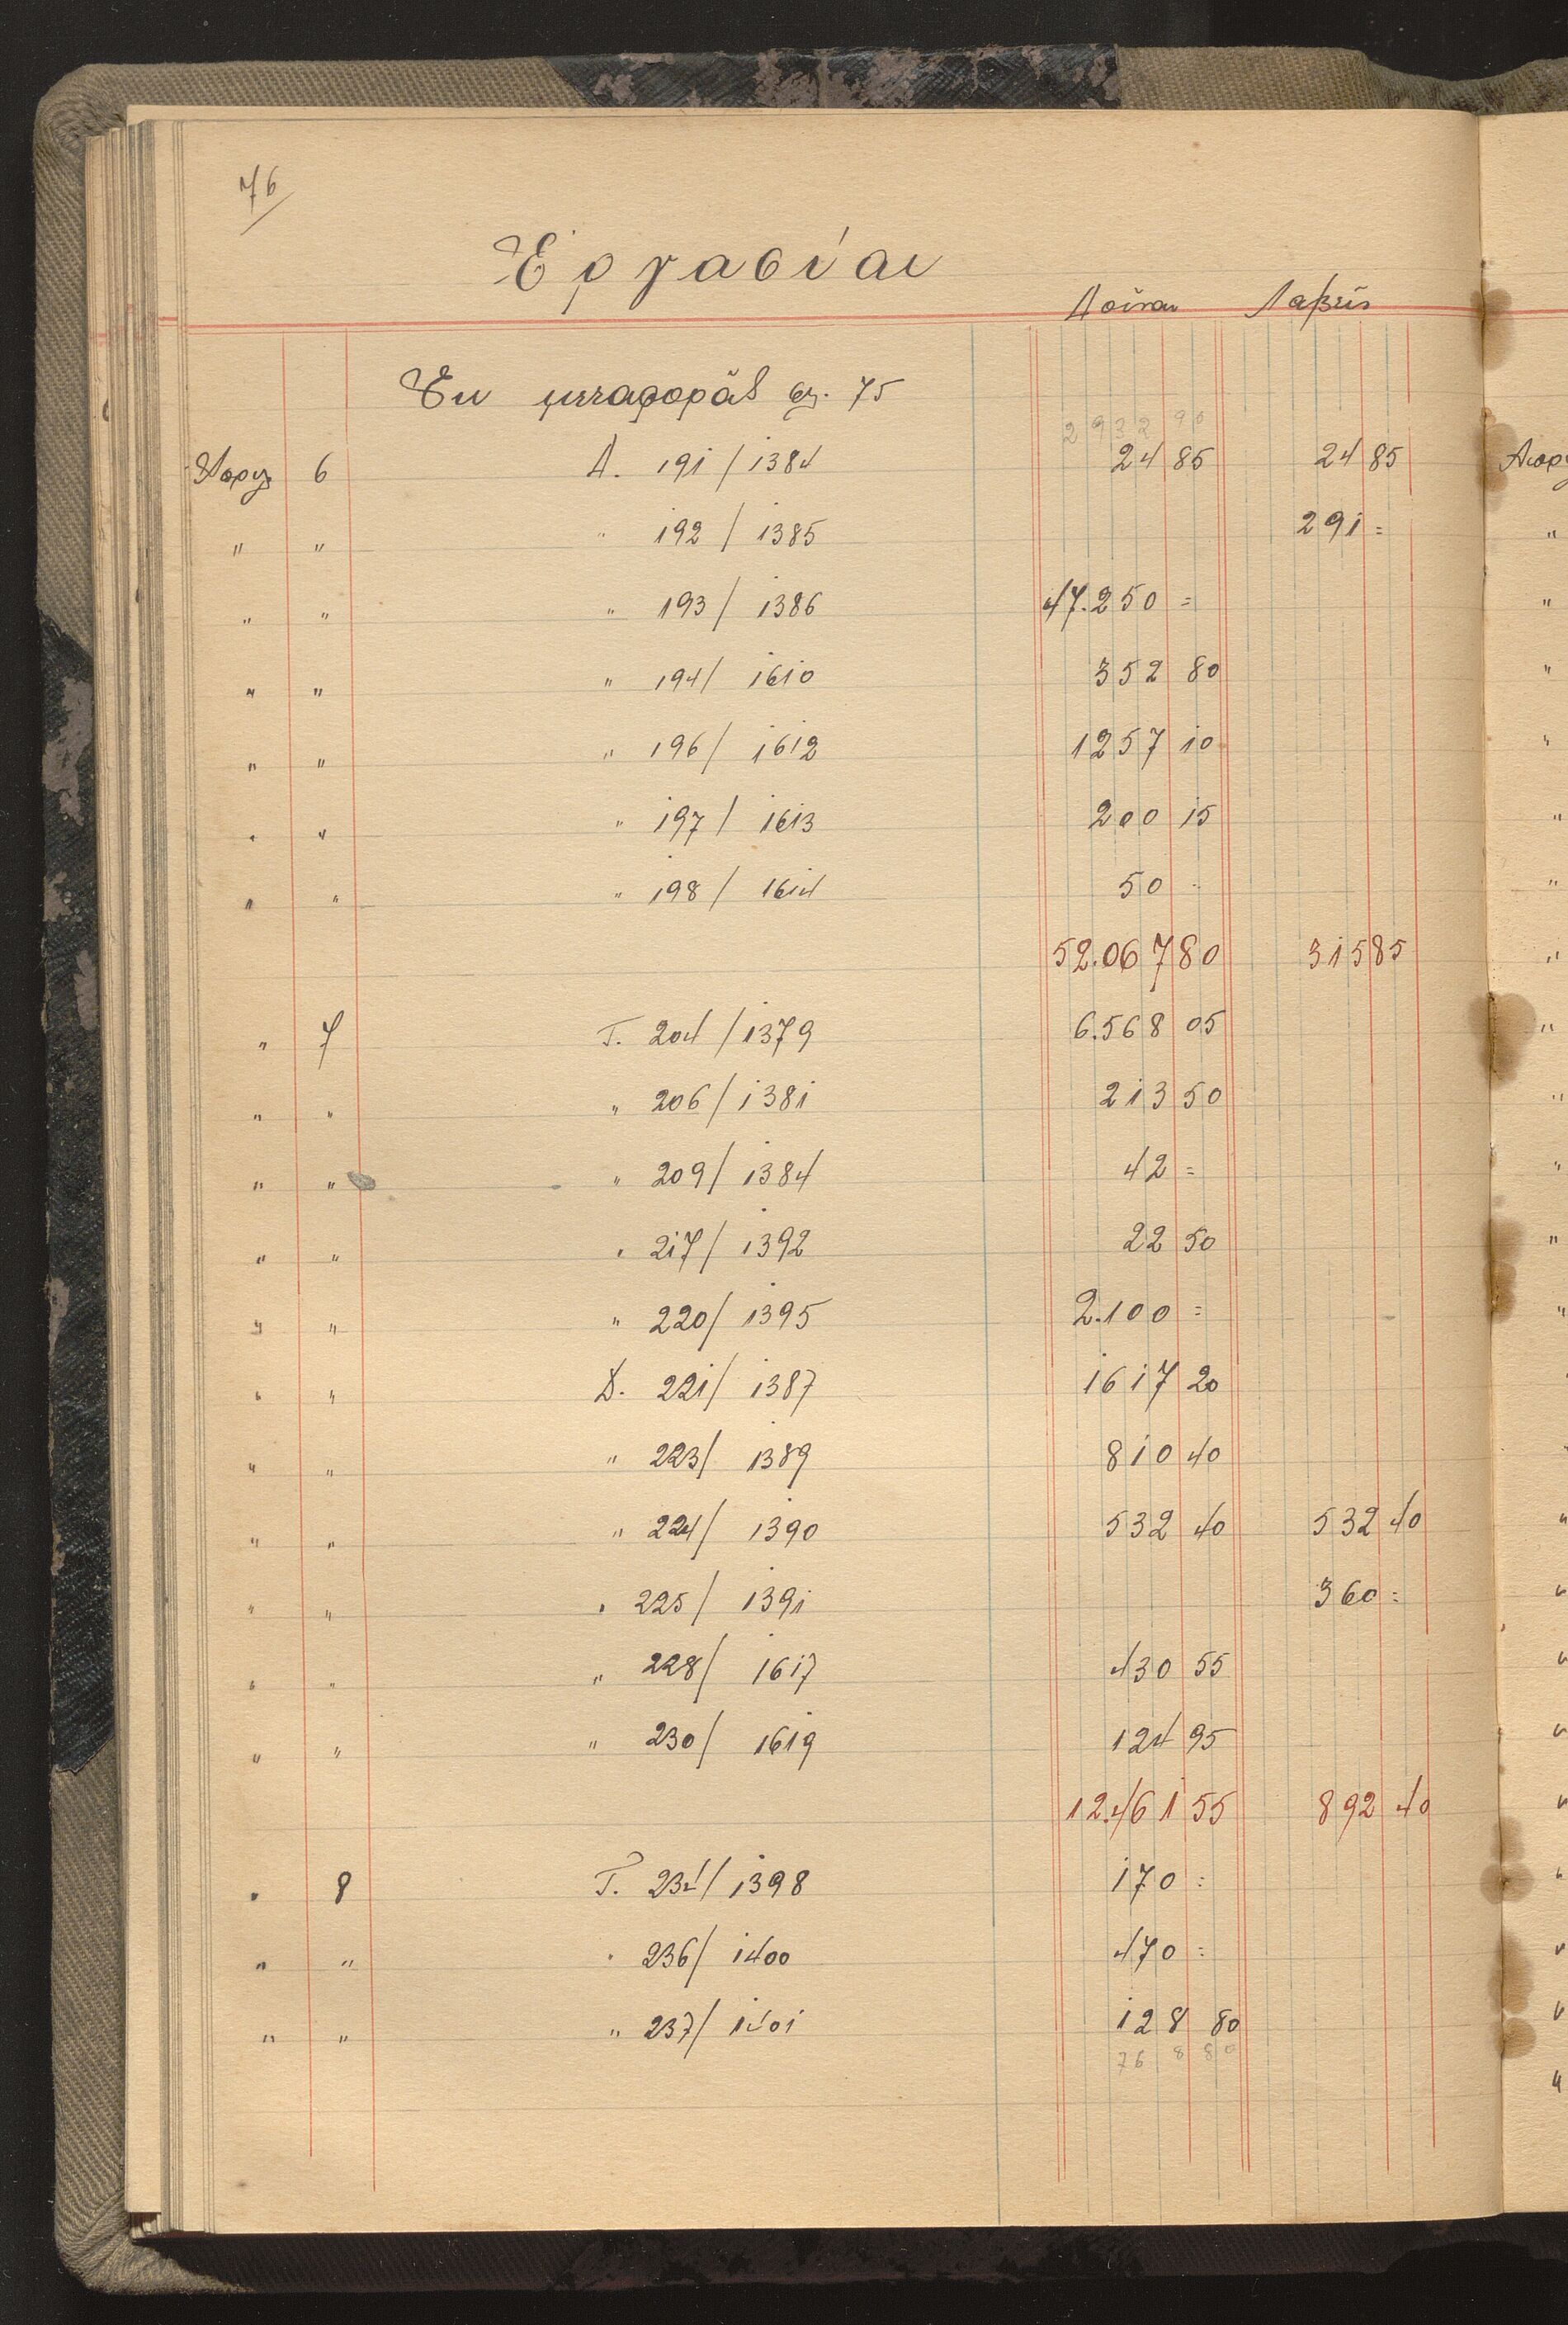 76
Ἐργασίαι
Δοῦναι Λαβεῖν
Ἐκ μεταφορᾶς σελ. 75
2932 90
Απρ 6 Δ. 191 / 1384 24 85 24 85
" " " 192 / 1385 291 =
" " " 193 / 1386 47.250 =
" " " 194 / 1610 352 80
" " " 196 / 1612 1257 10
" " " 197 / 1613 200 15
" " " 198 / 1614 50 =
52.067 80 315 85
" 7 Τ. 204 / 1379 6.568 05
" " " 206 / 1381 213 50
" " " 209 / 1384 42 =
" " " 217 / 1392 22 50
" " " 220 / 1395 2.100 =
" " Δ. 221 / 1387 1617 20
" " " 223 / 1389 810 40
" " " 224 / 1390 532 40 532 40
" " " 225 / 1391 360 =
" " " 228 / 1617 430 55
" " " 230 / 1619 124 95
12.461 55 892 40
" 8 Τ. 234 / 1398 170 =
" " " 236 / 1400 470 =
" " " 237 / 1401 128 80
768 80